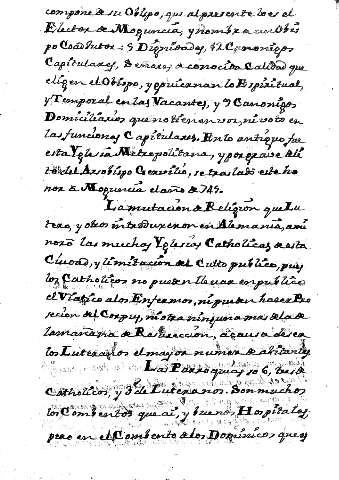 compone de su Obispo, que al presente lo es el
Elector de Moguncia, y nombra su Obis
po 5 Dignidades, 42 Canonigos
Capitulares, Señores de conocida Calidad que
eligen el Obispo, y goviernan lo Espiritual,
y Temporal en las Vacantes, y 9 Canonigos
Domiciliarios que no tienen voz, ni voto en
las funciones Capitulares. En lo antiguo fue
esta Yglesia Metropolitana, y por grave deli
to del Arzobispo se traslado este ho
nor a Moguncia el año de 747.
La mutacion de Religion que Lu
tero, y otros introduxeron en Alemania, ami
noró las muchas Yglesias Catholicas de esta
Ciudad, y limitacion del Culto publico, pues
los Catholicos no pueden llevar en publico
el Viatico a los Enfermos, ni pueden hacer Pro
secion del Corpus, ni otra ninguna mas de la de
la mañana de Resurrecion, a causa de ser
los Luteranos el mayor numero de abitantes
Las Parroquias so 6, tres de
Catholicos, y 3 de Luteranos. Son muchos
los Combentos que ai, y buenos Hospitales,
pero en el Combento de los Dominicos que es